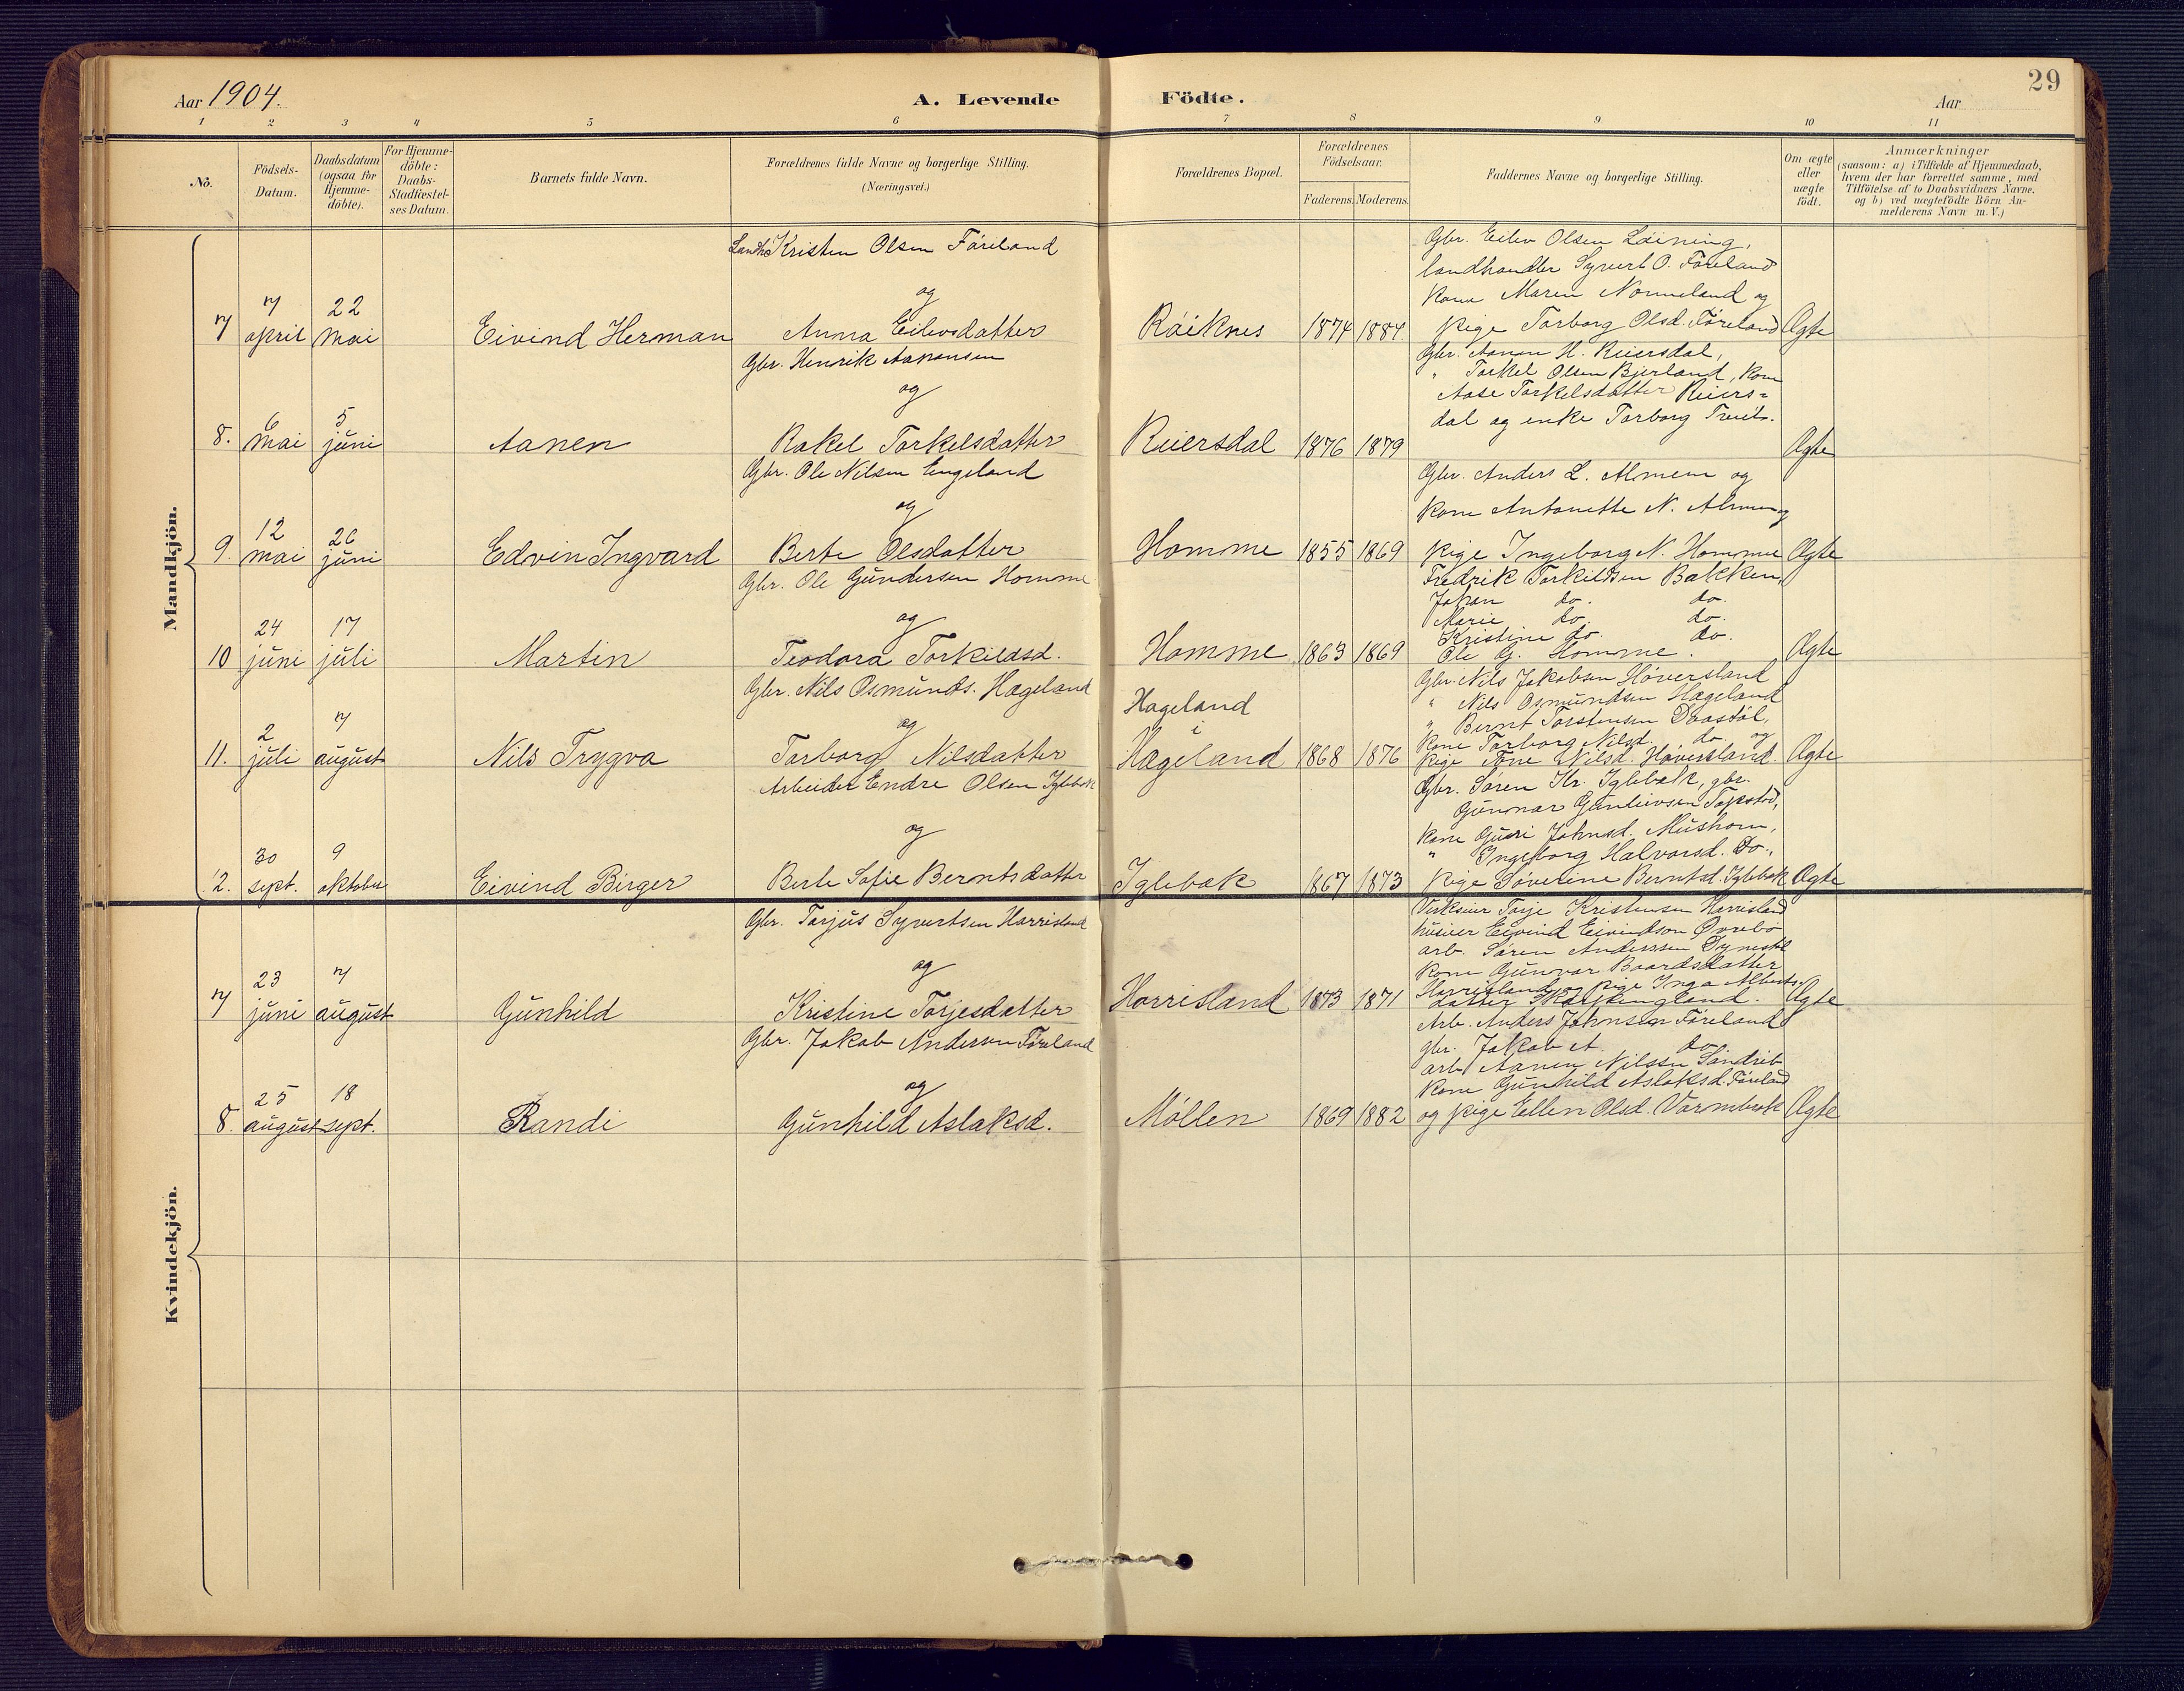 29
Aar 1904.
A. Levende Födte.
Aar
1 2 3 4 5 6 7 8 9 10 11
No.
Födsels-
Datum.
Daabsdatum
(ogsaa for
Hjemme-
döbte).
For Hjemme-
döbte:
Daabs-
Stadfæstel-
ses Datum.
Barnets fulde Navn.
Forældrenes fulde Navne og borgerlige Stilling.
(Næringsvei.)
Forældrenes Bopæl.
Forældrenes
Födselsaar.
Faderens. Moderens.
Faddernes Navne og borgerlige Stilling.
Om ægte
eller
uægte
födt.
Anmærkninger
(saasom: a) i Tilfælde af Hjemmedaab,
hvem der har forrettet samme, med
Tilföielse af to Daabsvidners Navne.
og b) ved uægtefödte Börn An-
melderens Navn m. V.)
Mandkjön.
7
7
april
22
mai
Eivind Herman
Landh. Kristen Olsen Föreland
og
Anna Eilevsdatter
Råiknes
1874 1884.
Gbr. Eilev Olsen Löining,
landhandler Syvert O. Föreland
Kone Maren Nonneland og
pige Torborg Olsd. Föreland
Ægte
8.
6
mai
5
juni
Aanen
Gbr. Henrik Aanensen
og
Rakel Torkelsdatter
Reiersdal
1876 1879
Gbr. Aanen H. Reiersdal,
" Torkel Olsen Bjerland, Kone
Aase Torkelsdatter Reiers=
dal og enke Torborg
Ægte
9.
12
mai
26
juni
Edvin Ingvard
Gbr. Ole Nilsen Engeland
og
Berte Olsdatter
Homme
1855 1869
Gbr. Anders L. Almem og
Kone Antonette N. Almem og
pige Ingeborg N. Homme
Ægte
10
24
juni
17
juli
Martin
Gbr. Ole Gundersen Homme
og
Teodora Torkildsd.
Homme
1863 1869
Fredrik Torkildsen Bakken,
Johan do. do.
Marie do. do.
Kristine do. do.
Ole G. Homme.
Ægte
11.
2
juli
7
august
Nils Trygva
Gbr. Nils Osmunds. Hageland
og
Torborg Nilsdatter
Hageland
i
Hægeland
1868 1876
Gbr. Nils Jakobsen Höversland
" Nils Osmundsen Hægeland
" Bernt Torstensen Daastöl,
Kone Torborg Nilsd. do. og
pige Tone Nilsd. Höversland.
Ægte
12.
30
sept.
9
oktober
Eivind Birger
Arbeider Endre Olsen Iglebæk
og
Berte Sofie Berntsdatter
Iglebæk
1867 1873
Gbr. Sören Kr. Iglebæk, gbr.
Gunnar Gunleivsen
Kone Guri Johnsd. Mushom,
" Ingeborg Halvorsd. Do.,
pige Söverine Berntsd. Iglebæk
Ægte
Kvindekjön.
7
23
juni
7
august
Gunhild
Gbr. Torjus Syvertsen Horrisland
og
Kristine Torjesdatter
Horrisland
1873 1871
Torje Kristensen Horrisland
Eivind Eivindson Övrebö
arb. Sören Anderssen
Kone Gunvor Baardsdatter
Horrisland og pige Inga Alberts-
datter Skarpengland.
Ægte
8.
25
august
18
sept.
Randi
Gbr. Jakob Andersen Föreland
og
Gunhild Aslaksd.
Möllen
1869 1882
Arb. Anders Johnsen Föreland
gbr. Jakob A. do.
arb. Aanen Nilssen
Kone Gunhild Aslaksd. Föreland
og pige Ellen Olsd. Varmbæk
Ægte